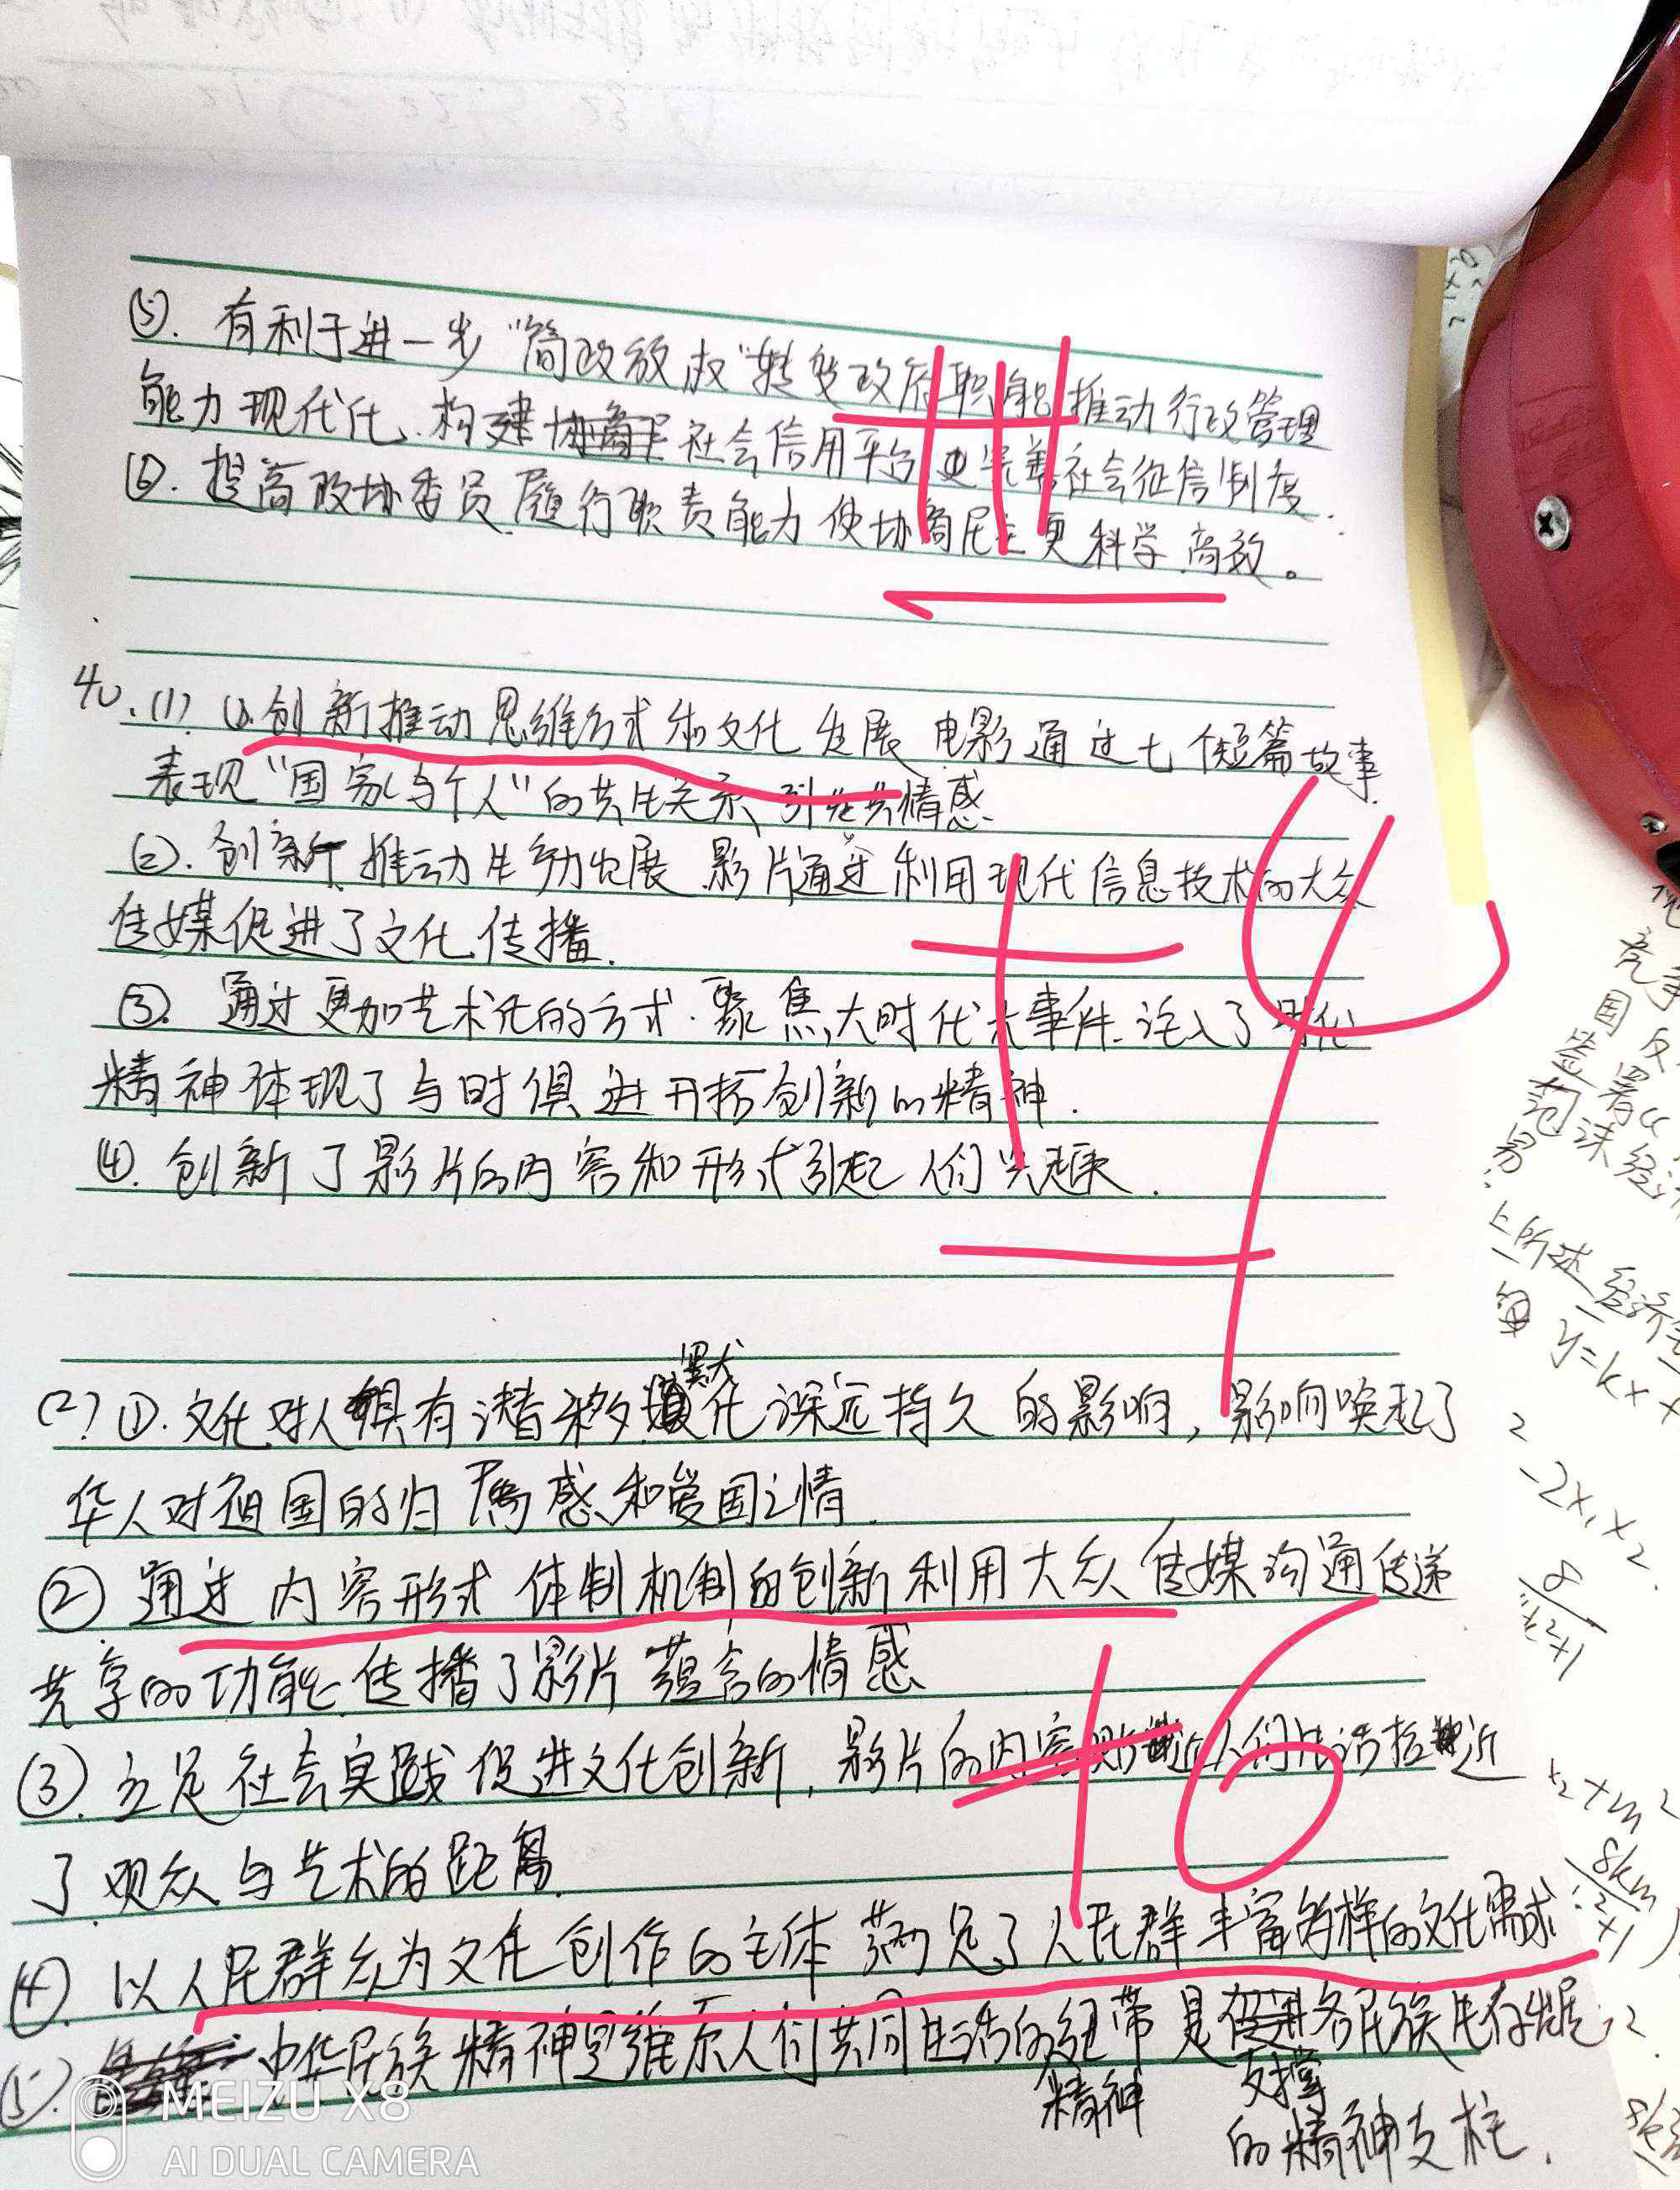 ⑤. 有利于进一步“简政放权”转变政府职能推动行政管理
能力现代化、构建 社会信用平台 完善社会征信制度.
⑥. 提高政协委员履行职责能力 使协商民主更科学 高效。
40.(1) ①.创新推动思维方式和文化发展 电影通过七个短篇故事
表现“国家与个人”的共生关系、引发共情感.
②. 创新推动生产力发展 影片通过利用现代信息技术的大众
传媒促进了文化传播.
③. 通过更加艺术化的方式.聚焦大时代大事件.注入了时代
精神体现了与时俱进开拓创新的精神.
④. 创新了影片的内容和形式引起人们兴趣.
(2)①.文化对人具有潜移默化深远持久的影响,影响唤起了
华人对祖国的归属感和爱国之情.
②通过内容形式 体制机制的创新利用大众传媒沟通传递
共享的功能 传播了影片蕴含的情感
③.立足社会实践促进文化创新,影片的内容贴近人们生活拉近
了观众与艺术的距离.
④.以人民群众为文化创作的主体 满足了人民群丰富多样的文化需求
⑤. 中华民族精神是维系人们共同生活的纽带 是 各民族生存发展
精神 支撑
的精神支柱.
+4
+6
y=kx+
-2x₁x₂
8
MEIZU X8
AI DUAL CAMERA